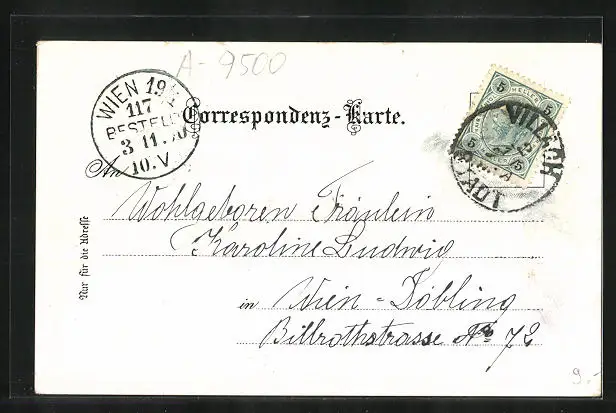 A-9500
WIEN 19/1
117
BESTELLT
3 11.00
10.V
Correspondenz-Karte.
5 HELLER 5
5 5
VILLACH
An
Wohlgeboren Fräulein
Karoline Ludwig
in Wien - Döbling
Billrothstrasse No 72
Nur für die Adresse
9.-